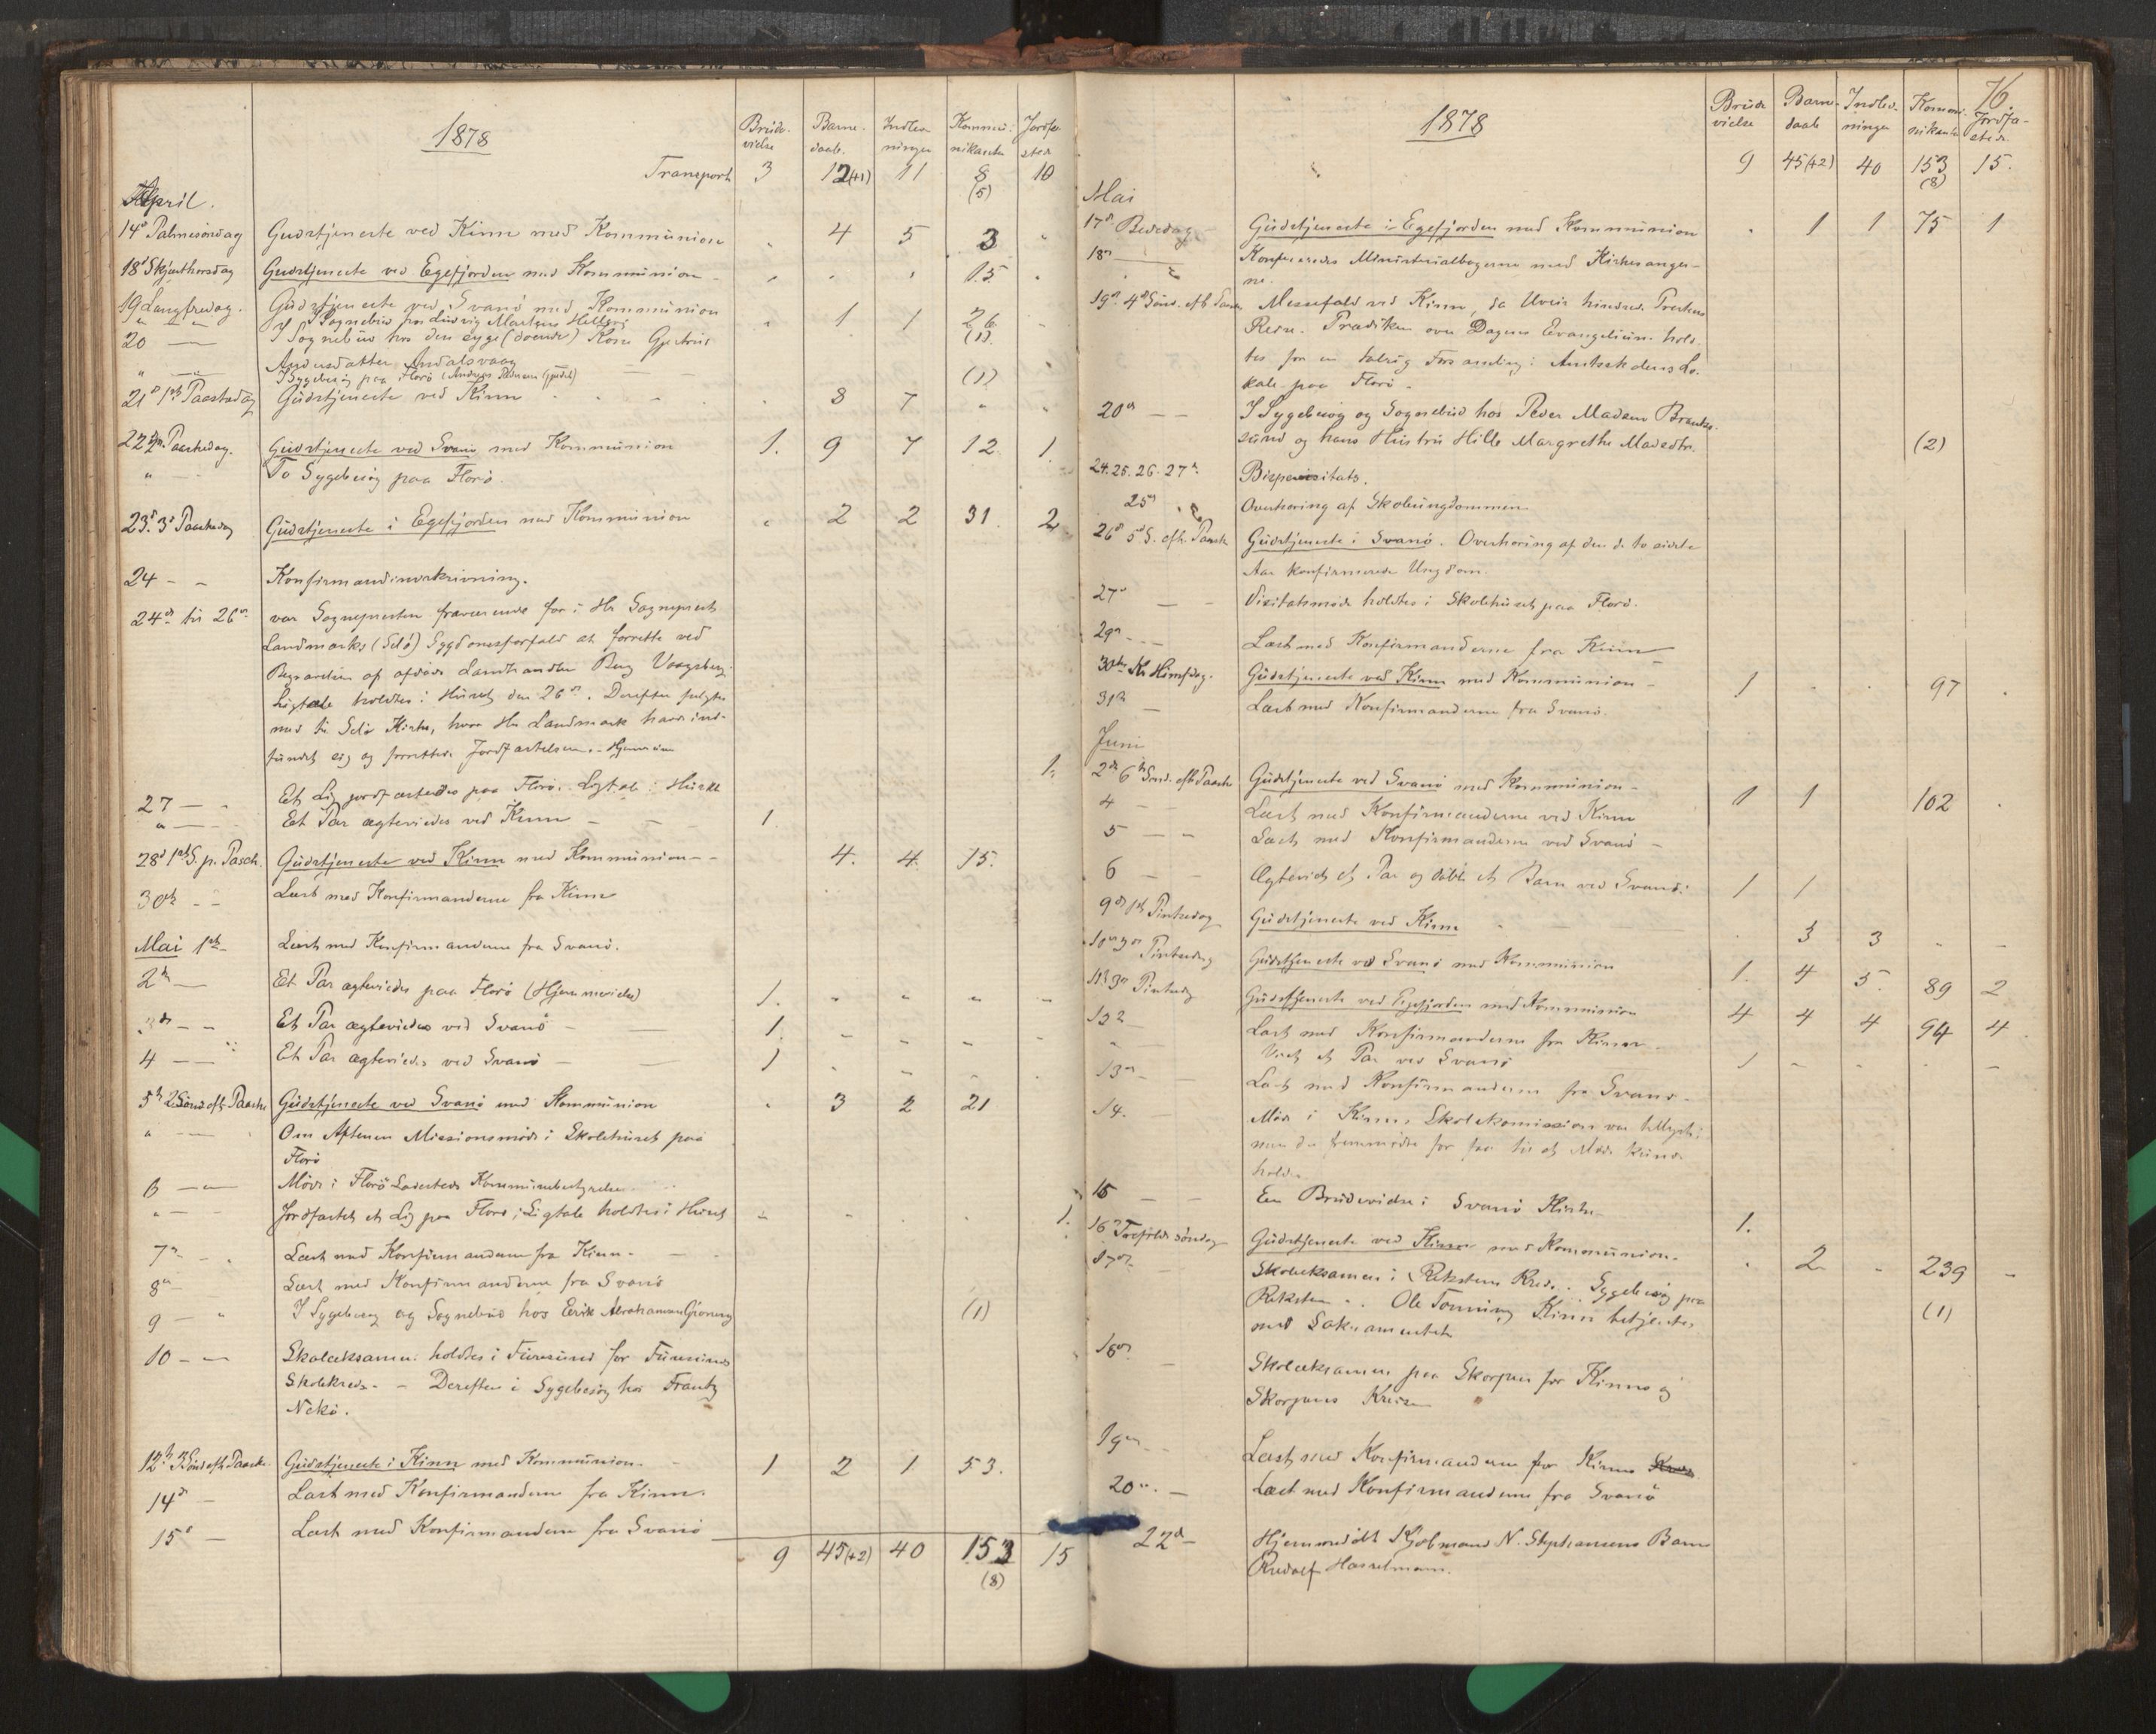 1878
Brude- Barne- Indled- Kommu- Jordfæ-
vielse daab. ninger nikanter sted
Transport 3 12(+1) 11 8 10
(5)
April.
14d Palmesøndag Gudstjeneste ved Kinn med Kommunion 4 5 3
18d Skjærthorsdag Gudstjeneste ved Egefjorden med Kommunion 15
19 Langfredag. Gudstjeneste ved Svanö med Kommunion 1 1 26
" — I Sognebud hos Ludvig Martinus
20 — I Sognebud hos den syge (døende) Gjertrud (1)
Andersdatter Andalsvaag
" — I Sygebesøg paa Florö (1)
21d 1ste Paaskedag Gudstjeneste ved Kinn 8 7
22d 2den Paaskedag. Gudstjeneste ved Svanö med Kommunion 1. 9 7 12 1.
" To Sygebesög paa Florö.
23d. 3d Paaskedag Gudstjeneste i Egefjorden med Kommunion 2 2 31. 2
24 - - Konfirmandindskrivning.
24de til 26de var Sognepresten fraværende for i Hr Sogneprest
Landmarks (Selö) Sygdomsforfald at forrette ved
Begravelsen af afdøde Landhandler Berg Vaagsberg.
Ligtale holdtes i Huset den 26de. Derefter fulgtes
med til Selö Kirke, hvor Hr Landmark havde ind-
fundet sig og forrettede Jordfæstelsen. - Hjem
27 — - Et Lig jordfæstedes paa Florö. Ligtale i Huset 1.
" — Et Par ægteviedes ved Kinn — 1.
28d 1ste S. p. Pasch. Gudstjeneste ved Kinn med Kommunion - - 4. 4. 15.
30te - - Læst med Konfirmanderne fra Kinn
Mai 1ste Læst med Konfirmanderne fra Svanö.
2den — Et Par ægteviedes paa Florö (Hjemmevielse) 1.
3de - - Et Par ægteviedes ved Svanö — 1.
4 — - Et Par ægteviedes ved Svanö — 1
5te 2 Sönd. eft. Paaske Gudstjeneste ved Svanö med Kommunion 3 2 21
" — Om Aftenen Missionsmöde i Skolehuset paa
Florö
6 — Möde i Florö Ladesteds Kommunebestyrelse
" — Jordfæstet et Lig paa Florö; Ligtale holdtes i Huset 1.
7de - Læst med Konfirmanderne fra Kinn -
8de Læst med Konfirmanderne fra Svanö
9 — " I Sygebesög og Sognebud hos Eerik Abrahamsen (1)
10 - — Skoleeksamen holdtes i Furesund for Furesunds
Skolekreds - - Derefter i Sygebesög hos Frantz
Nekö.
12te 3 Sönd eft. Paaske. Gudstjeneste i Kinn med Kommunion - 1 2 1 53.
14d — Læst med Konfirmanderne fra Kinn.
15d — Læst med Konfirmanderne fra Svanö
9 45(+2) 40 153 15
(8)
76.
1878
Brude Barne- Indled- Kommu- Jordfæ-
vielse daab ninger nikanter stede.
9 45(+2) 40 153 15.
(8)
Mai
17de Bededag - Gudstjeneste i Egefjorden med Kommunion 1 1 75 1
18de — Konfereredes Ministerialbøgerne med Kirkesanger-
ne.
19de 4de Sönd. eft. Paaske Messefald ved Kinn, da Uveir hindrede Prestens
Reise. Prædiken over Dagens Evangelium hold-
tes for en talrig Forsamling i Amtsskolens Lo-
kale paa Florö.
20de — — I Sygebesög og Sognebud hos Peder Madsen
sund og hans Hustru Hille Margrethe Madsdtr. (2)
24. 25. 26. 27de Bispevisitats.
25de Overhøring af Skoleungdommen
26de 5te S. eft. Paaske Gudstjeneste i Svanö. Overhøring af den de to sidste
Aar konfirmerede Ungdom.
27de — - Visitatsmøde holdtes i Skolehuset paa Florö.
29de - — Læst med Konfirmanderne fra Kinn
30te Kr Himfdag. Gudstjeneste ved Kinn med Kommunion - 1 97
31te — Læst med Konfirmanderne fra Svanö.
Juni
2de 6te Sönd. eft Paaske Gudstjeneste ved Svanö med Kommunion - 1 1 102
4 — - Læst med Konfirmanderne ved Kinn
5 — - Læst med Konfirmanderne ved Svanö -
6 — - Ægteviet et Par og döbt et Barn ved Svanö: 1 1
9de 1ste Pintsedag Gudstjeneste ved Kinn 3 3
10de 2den Pintsedag Gudstjeneste ved Svanö med Kommunion 1. 4 5. 89 2
11te 3die Pintsedag Gudstjeneste ved Egefjorden med Kommunion 4 4 4 94 4
12 Læst med Konfirmanderne fra Kinn -
" Viet et Par ved Svanö 1
13de - Læst med Konfirmanderne fra Svanö -
14. Möde i Kinns Skolekomission var
men der fremmødte for faa til at Möde kunde
holdes
15 — — En Brudevielse i Svanö Kirke 1.
16de Trefoldsöndag Gudstjeneste ved Kinn med Kommunion - 2 239
17de Skoleeksamen i Rekstens Kreds. Sygebesög paa
Reksten. Ole Tonning Kinn betjentes (1)
med Sakramentet
18de — Skoleeksamen paa Skorpen for Kinns og
Skorpens Kredse
19de - Læst med Konfirmanderne fra Kinn
20de. — Læst med Konfirmanderne fra Svanö
22de - Hjemmedöbt Kjøbmand N. Stephansens Barn
Rudolf Hasselmann.